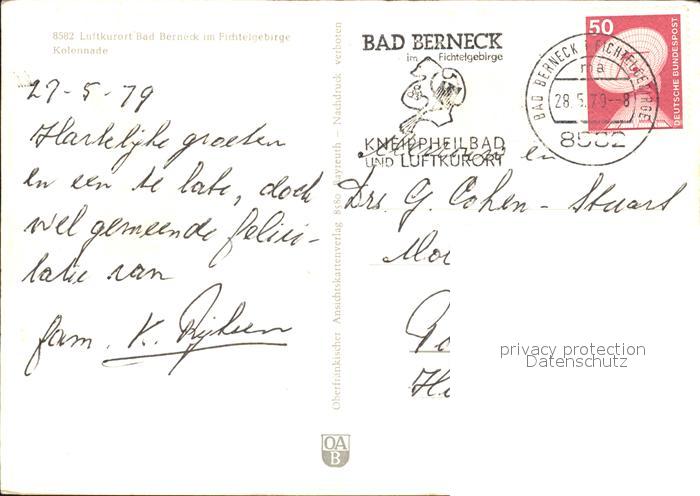 8582 Luftkurort Bad Berneck im Fichtelgebirge
Kolonnade
27-5-79
Hartelijke groeten
en een te late, doch
wel gemeende felici-
tatie van
fam. K.
Oberfränkischer Ansichtskartenverlag 8580 Bayreuth — Nachdruck verboten
OA
B
BAD BERNECK
im Fichtelgebirge
KNEIPPHEILBAD
UND LUFTKURORT
BAD BERNECK I FICHTELGEBIRGE
ma
28.5.79--8
8582
50
DEUTSCHE BUNDESPOST
en
Drs. G. Cohen-Stuart
privacy protection
Datenschutz